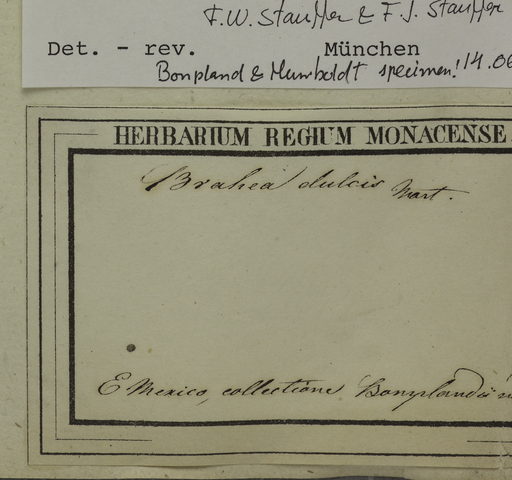 F.W. Stauffer & F.J. Stauffer
Det. - rev. München
Bonpland & Humboldt specimen! 14.06
HERBARIUM REGIUM MONACENSE.
Brahea dulcis Mart.
E Mexico, collectione Bonplandii